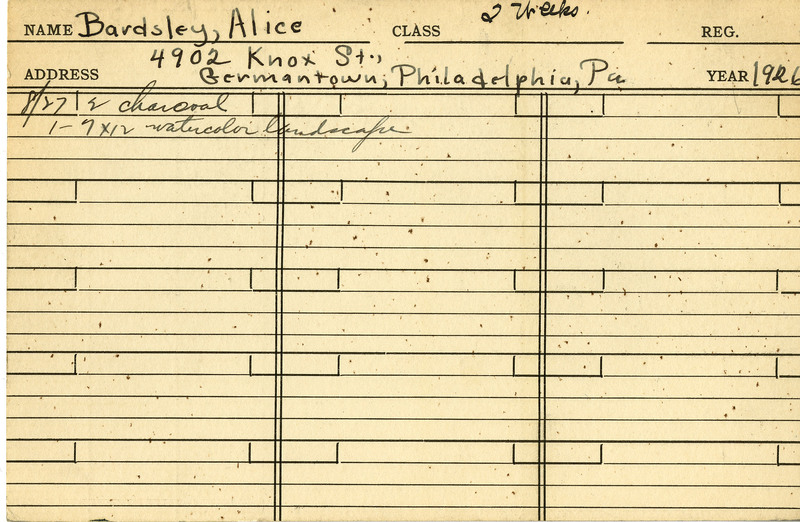 NAME Bardsley, Alice CLASS 2 Weeks. REG.
4902 Knox St.,
ADDRESS Germantown, Philadelphia, Pa YEAR 1926
8/27 2 charcoal
1-9x12 watercolor landscape